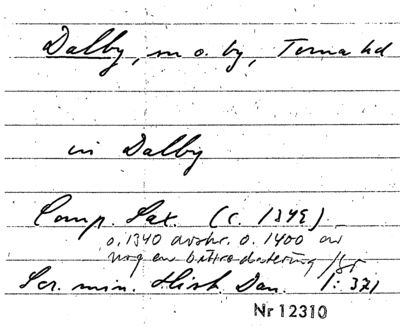 Dalby, sn o. by, Torna hd
in Dalby
Comp. Sax. (c. 1345)
o. 1340 avskr. o. 1400 är
nog en bättre datering /
Scr. min. Hist. Dan. 1: 371
Nr 12310